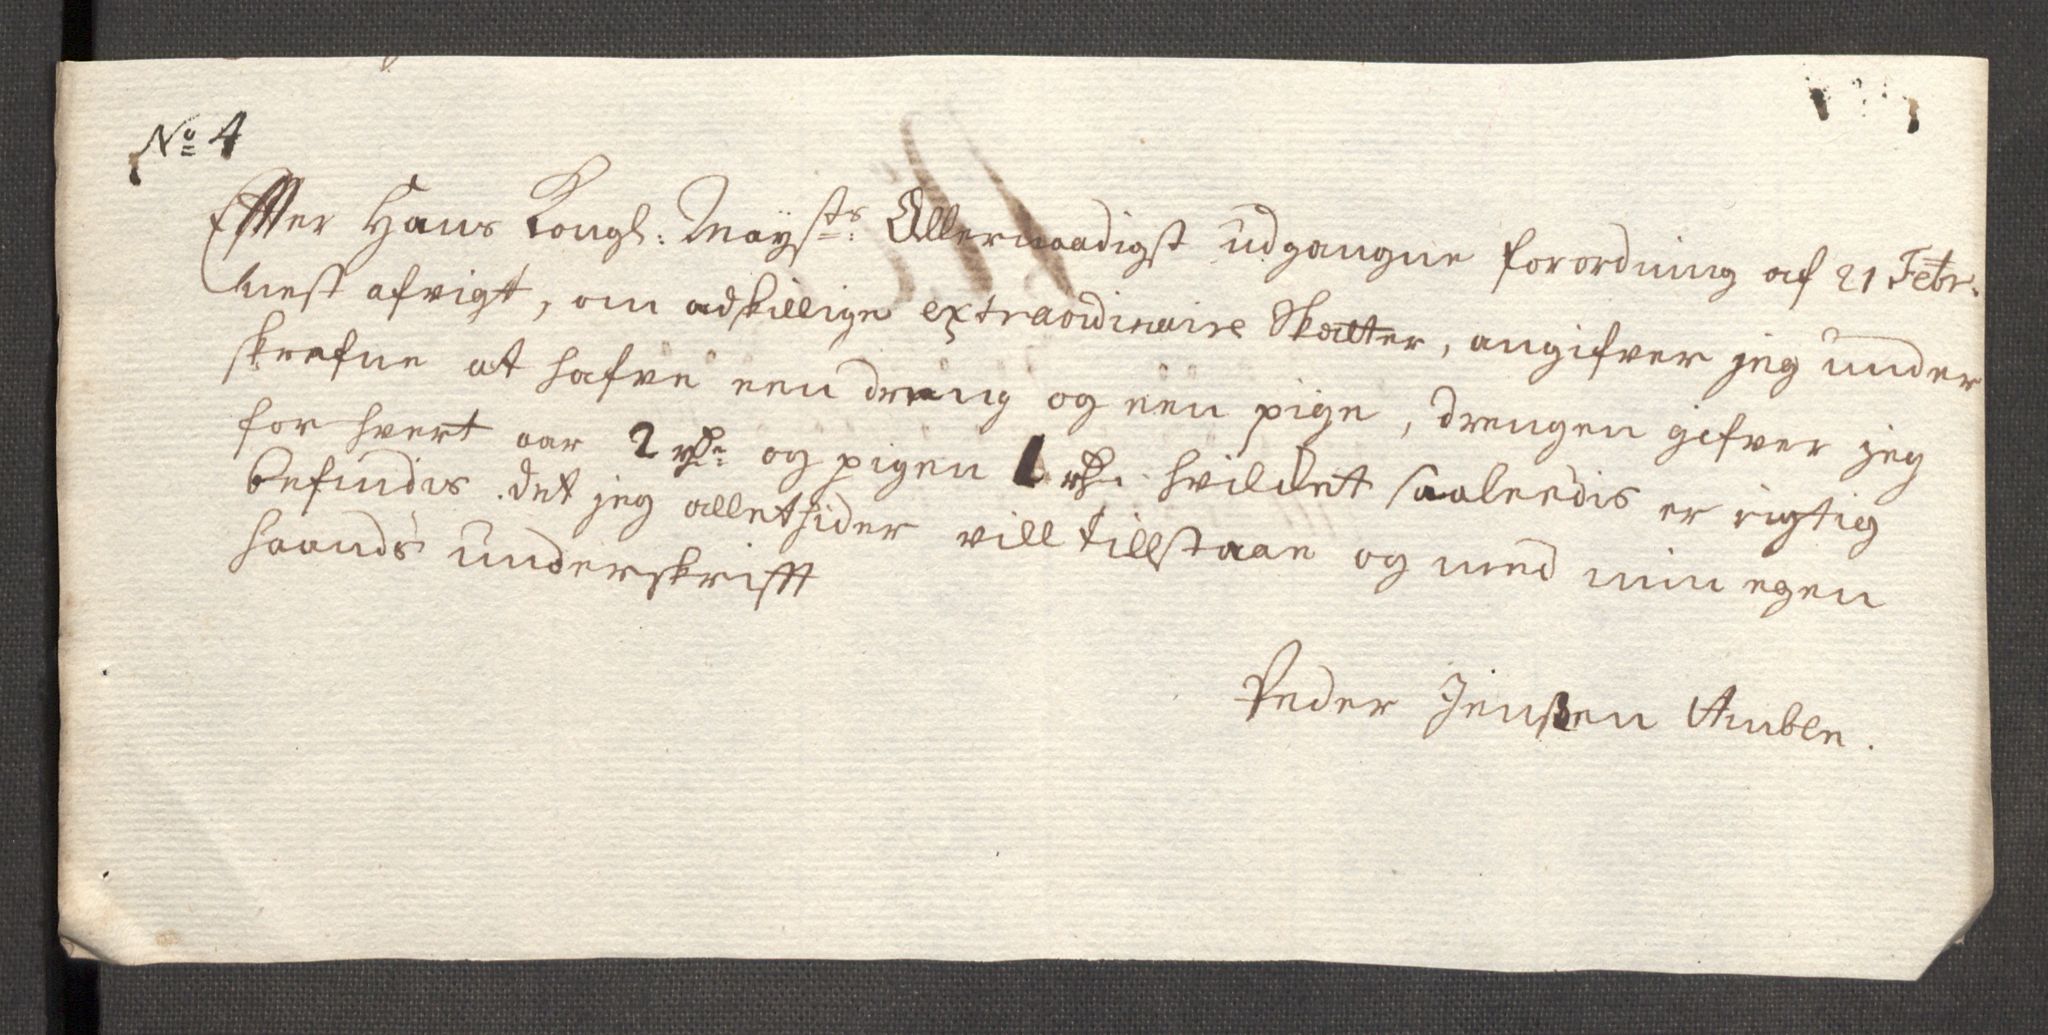 No 4
Effter Hans Kongl: Mayst:s Allernaadigst udgangne forordning af 21 Febr.
nest afvigt, om adskillige extraordinaire Skatter, angifver jeg under
skrefne at hafve een dreng og een pige, drengen gifver jeg
for hvert aar 2 rdr og pigen 1 rdr. hvilcket saaleedis er rigtig
befindis. det jeg alletsider vill tillstaae og med min egen
haands underskrifft
Peder Jenßen Amble.